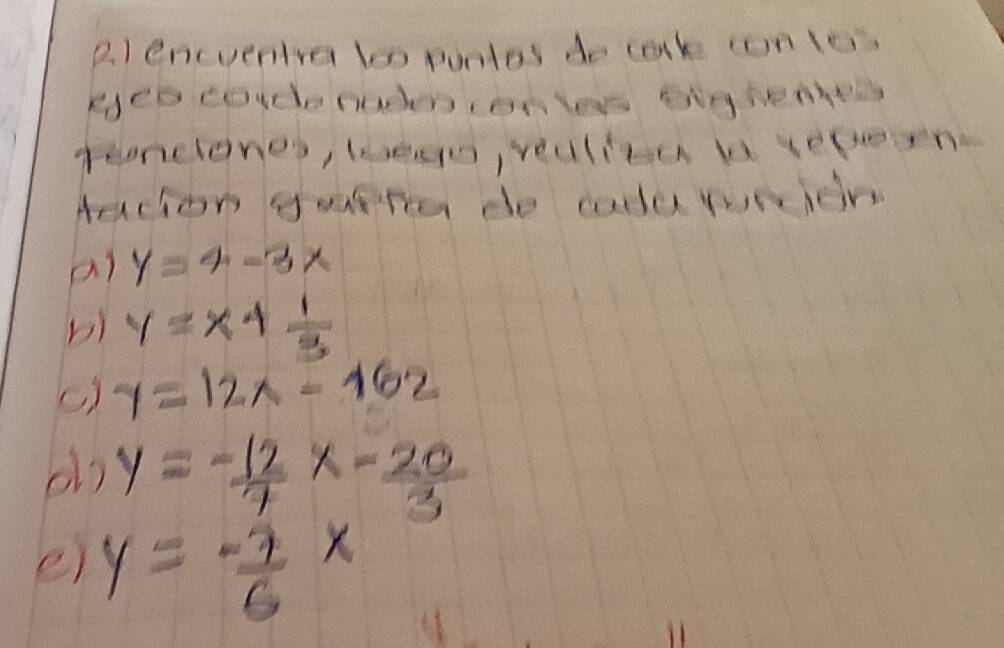 2) encuentra los puntos de corte con los
ejes coordenados con las siguientes
funciones, luego, realiza la represen-
tacion grafica de cada función
a) y = 4 - 3x
b) y = x + 1/3
c) y = 12x - 162
d) y = -12/7 x - 20/3
e) y = -7/6 x